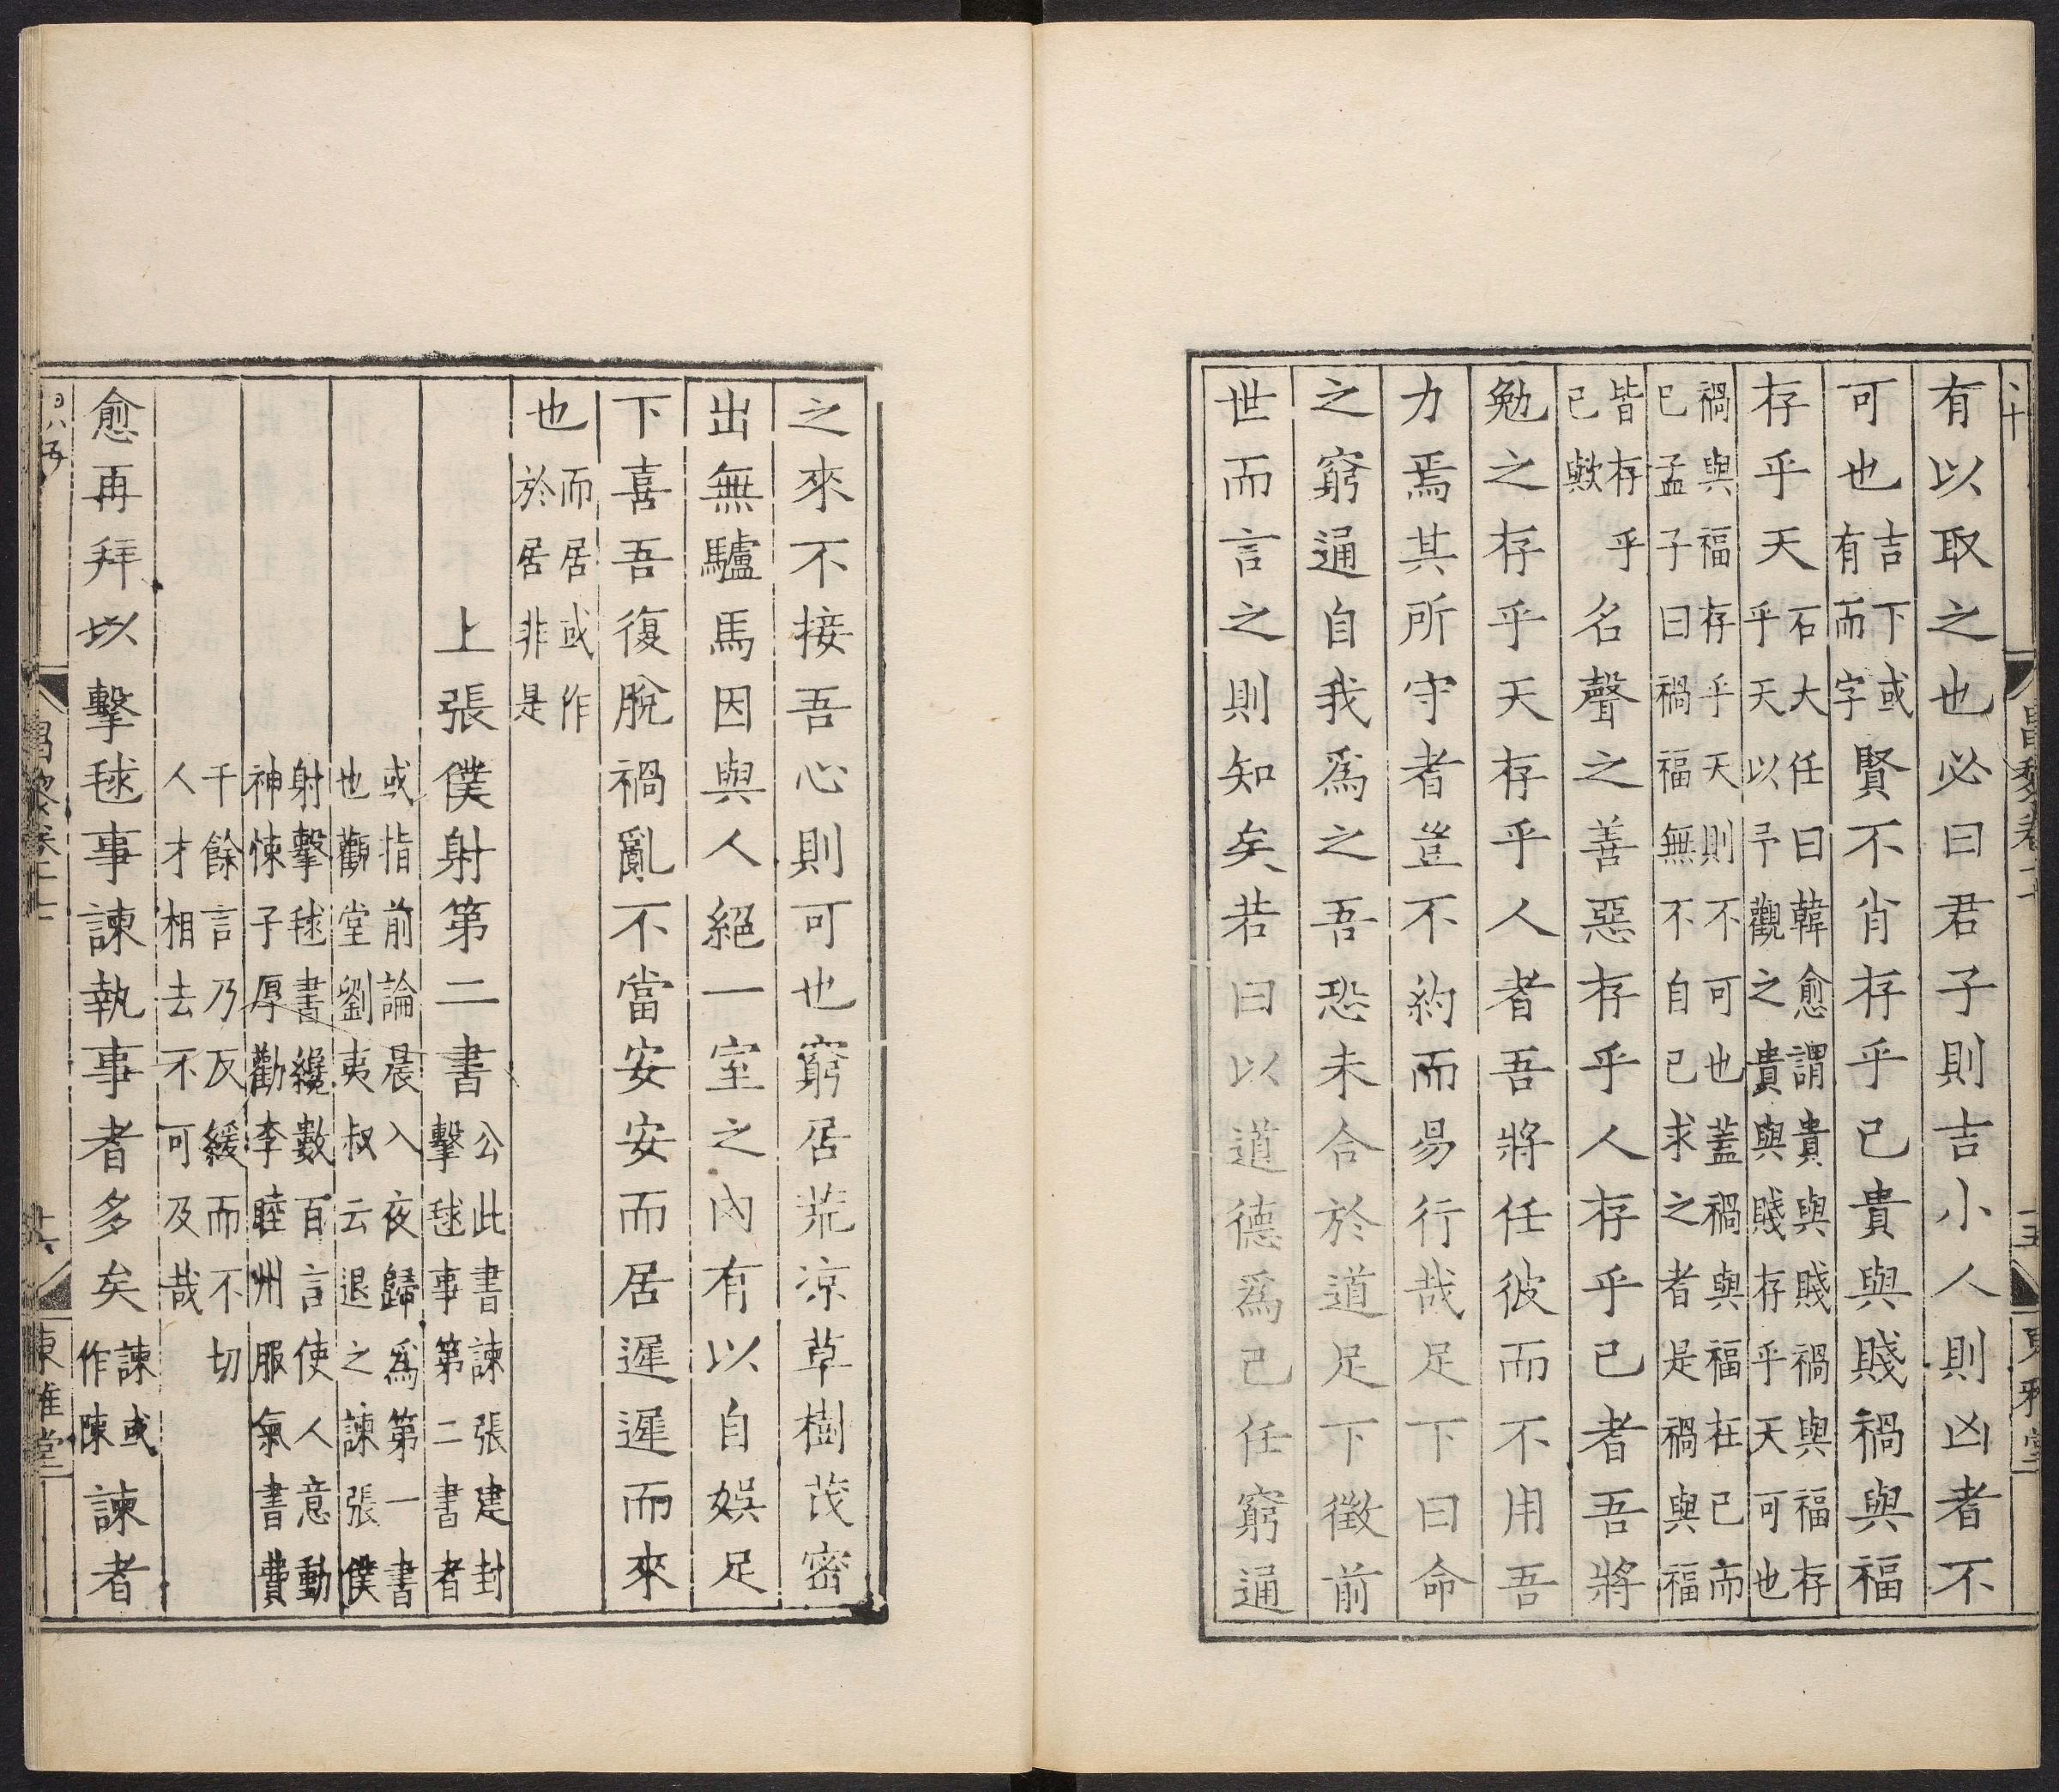 有以取之也必曰君子則吉小人則凶者不
可也吉下或有而字賢不肖存乎己貴與賤禍與福
存乎天石大任曰韓愈謂貴與賤禍與福存乎天以予觀之貴與賤存乎天可也
禍與福存乎天則不可也蓋禍與福在已而已孟子曰禍福無不自已求之者是禍與福
皆存乎已歟名聲之善惡存乎人存乎己者吾將
勉之存乎天存乎人者吾將任彼而不用吾
力焉其所守者豈不約而易行哉足下曰命
之窮通自我爲之吾恐未合於道足下徵前
世而言之則知矣若曰以道德爲己任窮通
之來不接吾心則可也窮居荒涼草樹茂密
出無驢馬因與人絕一室之內有以自娛足
下喜吾復脫禍亂不當安安而居遲遲而來
也而居或作於居非是
上張僕射第二書公此書諫張建封擊毬事第二書者
或指前論晨入夜歸爲第一書也觀堂劉夷叔云退之諫張僕
射擊毬書纔數百言使人意動神悚子厚勸李睦州服氣書費
千餘言乃反緩而不切人才相去不可及哉
愈再拜以擊毬事諫執事者多矣諫或作陳諫者
昌黎卷十七
十六
東雅堂